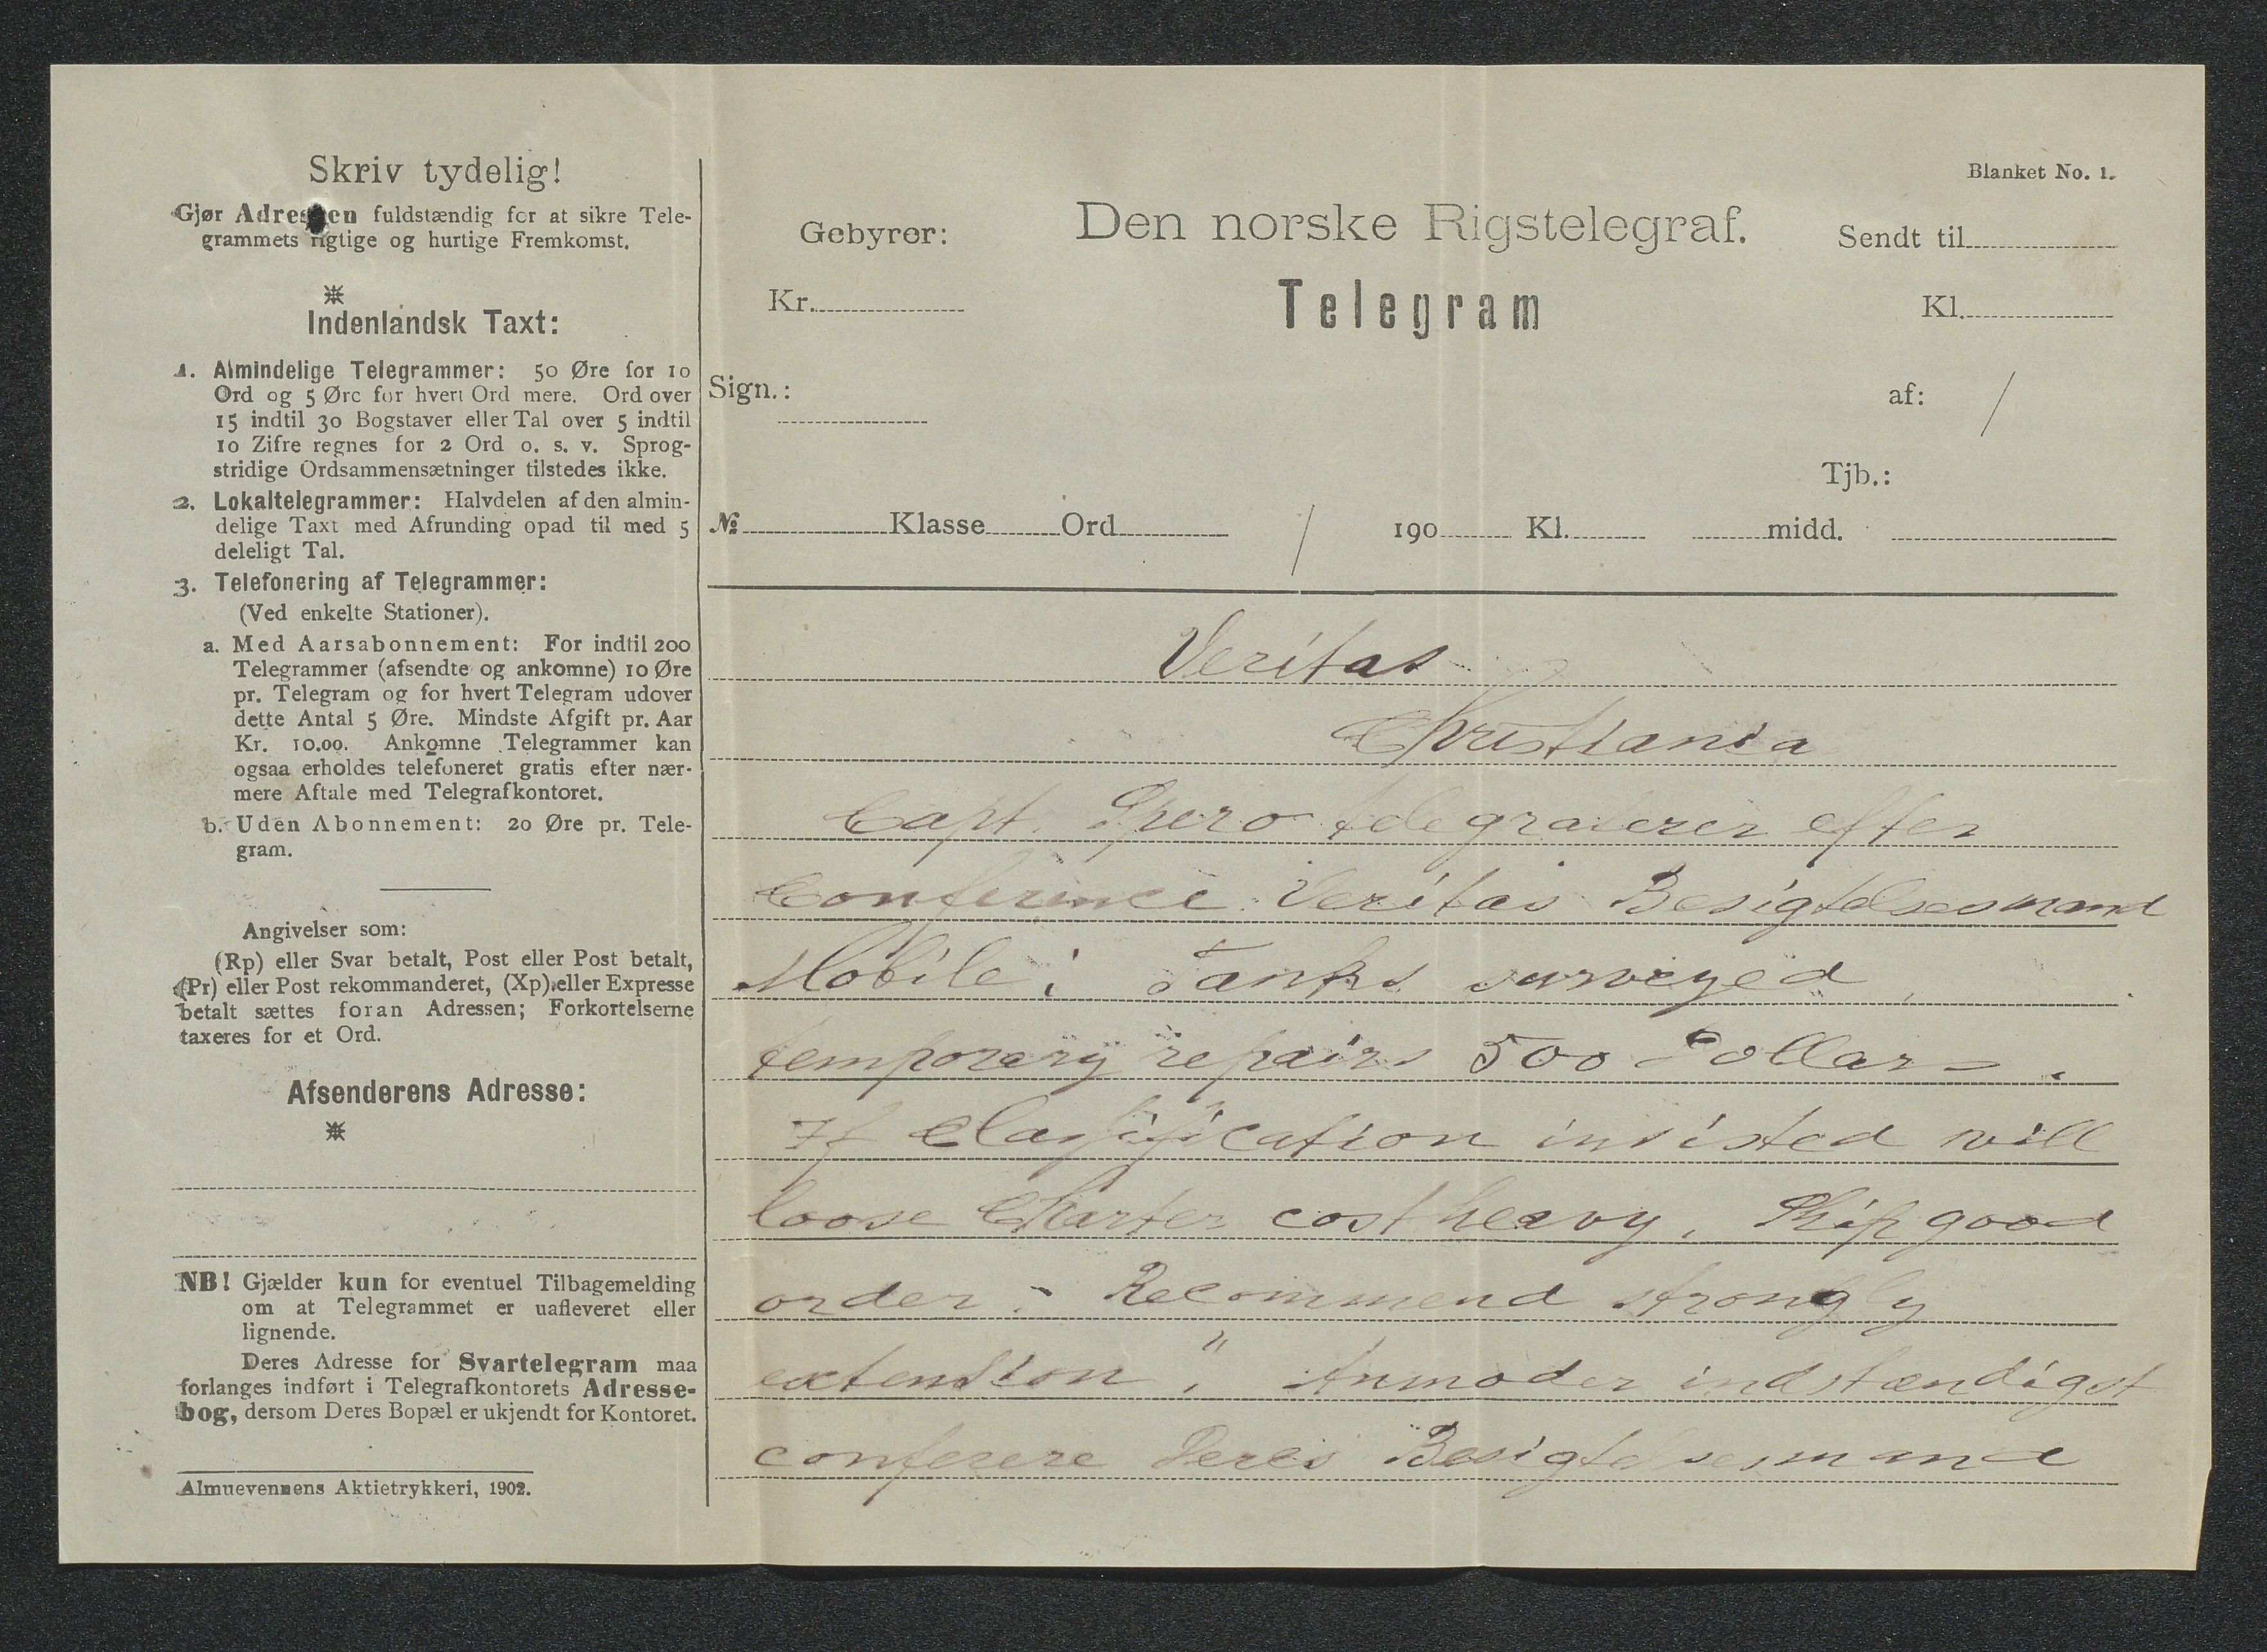 Skriv tydelig!
Gjør Adressen fuldstændig for at sikre Tele-
grammets rigtige og hurtige Fremkomst.
Indenlandsk Taxt:
1. Almindelige Telegrammer: 50 Øre for 10
Ord og 5 Øre for hvert Ord mere. Ord over
15 indtil 30 Bogstaver eller Tal over 5 indtil
10 Zifre regnes for 2 Ord o. s. v. Sprog-
stridige Ordsammensætninger tilstedes ikke.
2. Lokaltelegrammer: Halvdelen af den almin-
delige Taxt med Afrunding opad til med 5
deleligt Tal.
3. Telefonering af Telegrammer:
(Ved enkelte Stationer).
a. Med Aarsabonnement: For indtil 200
Telegrammer (afsendte og ankomne) 10 Øre
pr. Telegram og for hvert Telegram udover
dette Antal 5 Øre. Mindste Afgift pr. Aar
Kr. 10.00. Ankomne Telegrammer kan
ogsaa erholdes telefoneret gratis efter nær-
mere Aftale med Telegrafkontoret.
b. Uden Abonnement: 20 Øre pr. Tele-
gram.
Angivelser som:
(Rp) eller Svar betalt, Post eller Post betalt,
(Pr) eller Post rekommanderet, (Xp) eller Expresse
betalt sættes foran Adressen; Forkortelserne
taxeres for et Ord.
Afsenderens Adresse:
NB! Gjælder kun for eventuel Tilbagemelding
om at Telegrammet er uafleveret eller
lignende.
Deres Adresse for Svartelegram maa
forlanges indført i Telegrafkontorets Adresse-
bog, dersom Deres Bopæl er ukjendt for Kontoret.
Almuevennens Aktietrykkeri, 1902.
Blanket No. 1.
Gebyrer: Den norske Rigstelegraf. Sendt til
Kr. Telegram Kl.
Sign.: af: /
Tjb.:
№ Klasse Ord / 190 Kl. midd.
Veritas
Christiania
Capt. Spero telegraferer efter
Conference Veritas Besigtelsesmand
Mobile; Tanks surveyed,
temporary repairs 500 Dollars.
If Classification insisted will
loose Charter cost heavy, Ship good
order. Recommend strongly
extension," Anmoder indstændigst
conferere Deres Besigtelsesmand